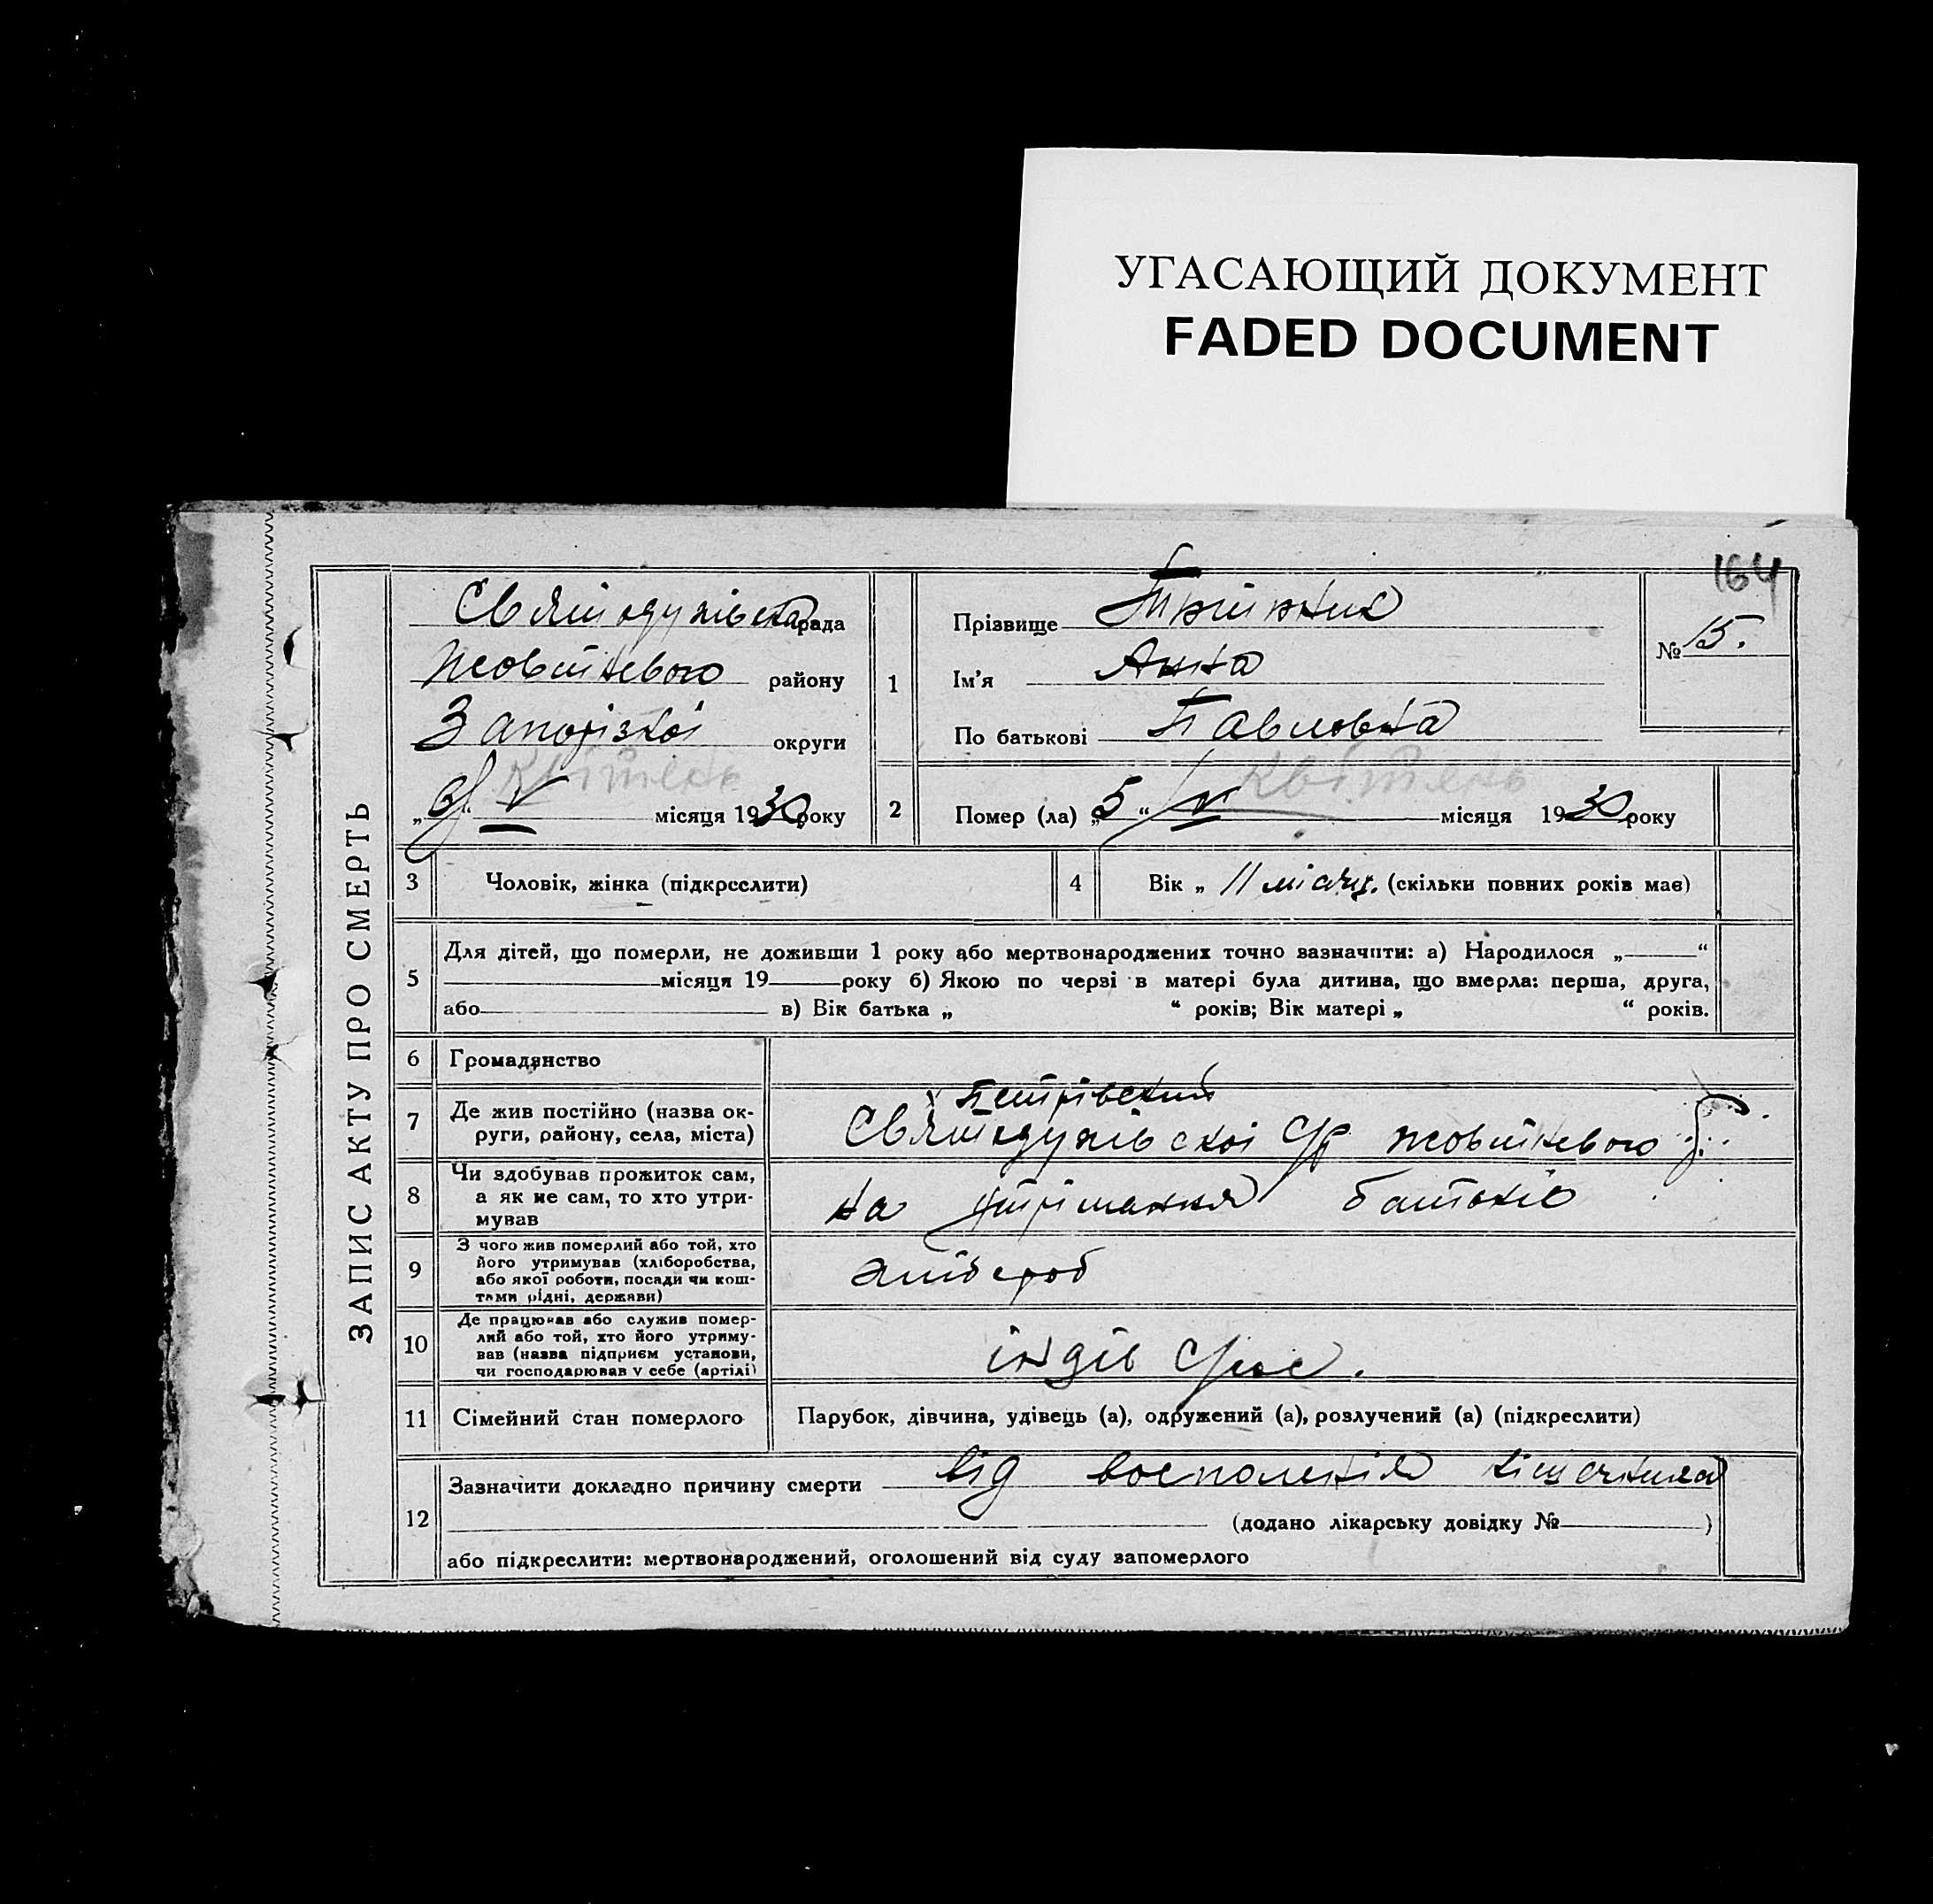 УГАСАЮЩИЙ ДОКУМЕНТ
FADED DOCUMENT
164
ЗАПИС АКТУ ПРО СМЕРТЬ
Святодухівська рада
Жовтневого району
Запорізкої округи
V квітень місяця 1930 року
1
Прізвище
Ім'я Анна
По батькові Павловна
№ 15.
2
Помер (ла) „5“ IV квітень місяця 1930 року
3 Чоловік, жінка (підкреслити)
4 Вік „ 11 місяц. (скільки повних років має)
5
Для дітей, що померли, не доживши 1 року або мертвонароджених точно зазначити: а) Народилося „ “
місяця 19 року б) Якою по черзі в матері була дитина, що вмерла: перша, друга,
або в) Вік батька „ “ років; Вік матері „ “ років.
6 Громадянство
7 Де жив постійно (назва ок-
руги, району, села, міста)
х Петрівский
Святодухівскої С/р Жовтневого
8 Чи здобував прожиток сам,
а як не сам, то хто утри-
мував
на утрімання батьків
9 З чого жив померлий або той, хто
його утримував (хліборобства,
або якої роботи, посади чи кош-
тами рідні, держави)
хліброб
10 Де працював або служив помер-
лий або той, хто його утриму-
вав (назва підприєм установи,
чи господарював у себе (артілі)
індів
11 Сімейний стан померлого
Парубок, дівчина, удівець (а), одружений (а), розлучений (а) (підкреслити)
12
Зазначити докладно причину смерти від восполенія кішечника
(додано лікарську довідку № )
або підкреслити: мертвонароджений, оголошений від суду запомерлого